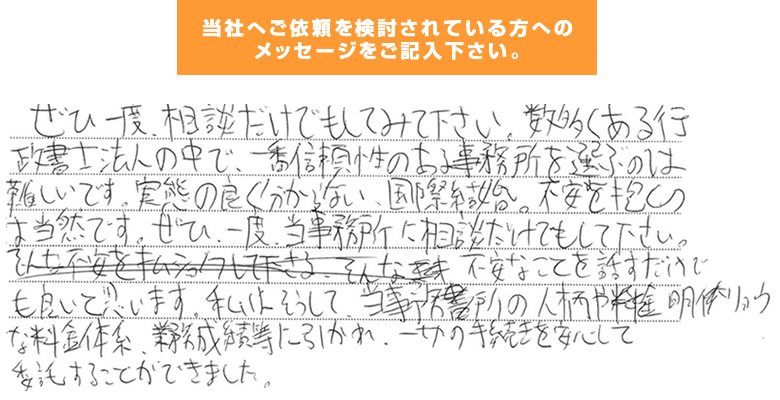 当社へご依頼を検討されている方への
メッセージをご記入下さい。
ぜひ一度、相談だけでもしてみて下さい。数多くある行
政書士法人の中で、一番信頼性のある事務所を選ぶのは
難しいです。実態の良く分からない、国際結婚。不安を抱くの
は当然です。ぜひ、一度、当事務所に相談だけでもして下さい。
そんな不安を 下さる、そんな 不安なことを話すだけで
も良いと思います。私はそうして、当事務所の人柄や 明朗
な料金体系、業務成績等に引かれ、一切の手続きを安心して
委託することができました。